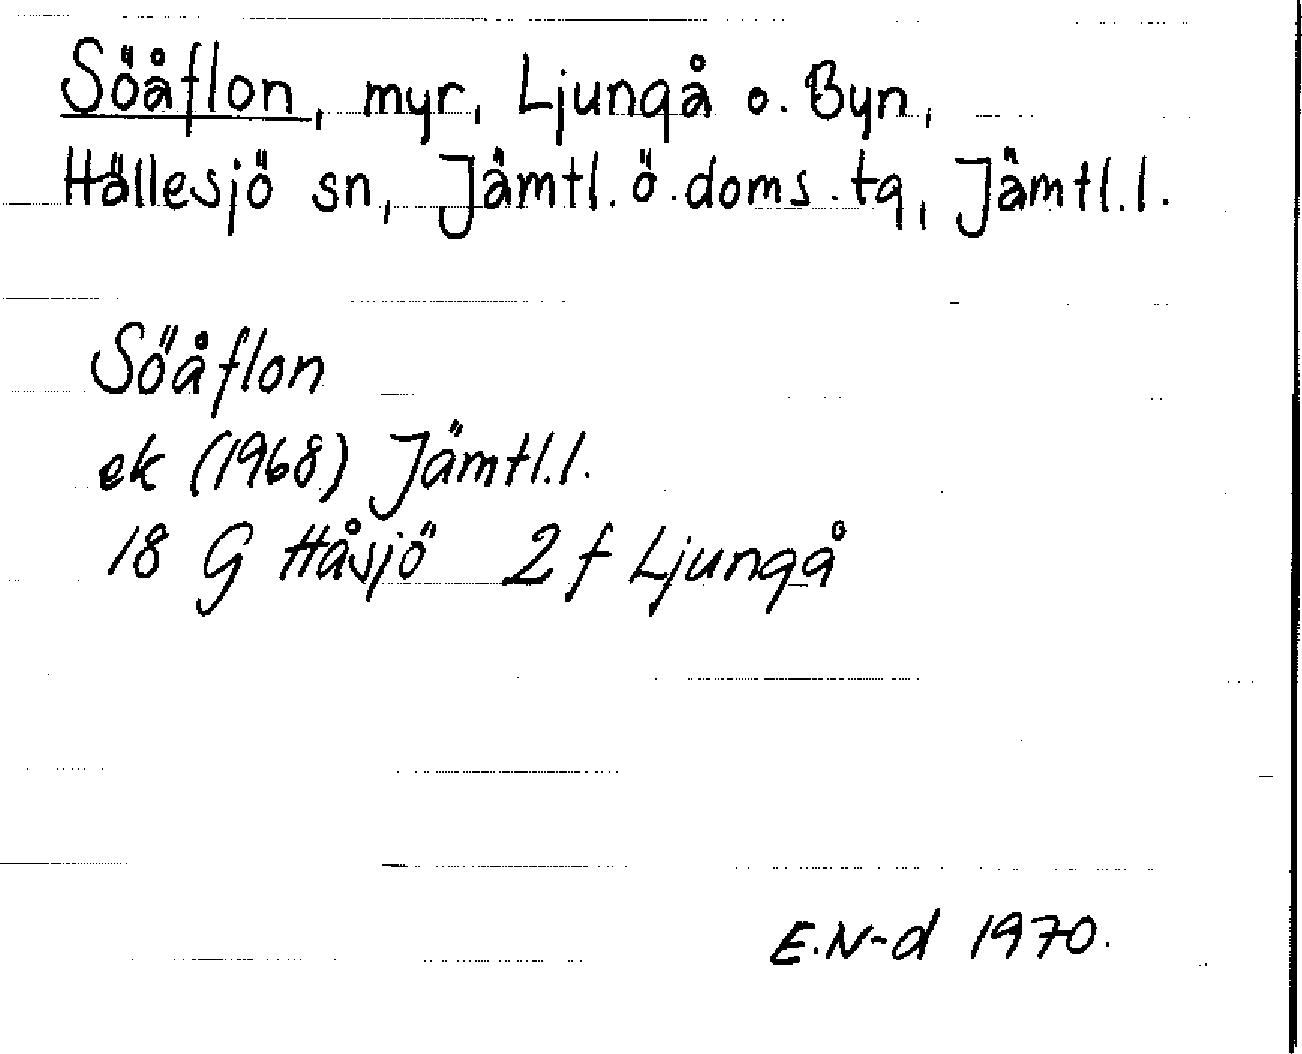 Söåflon, myr, Ljungå o. Byn,
Hällesjö sn, Jämtl. ö. doms. tg, Jämtl.l.
Söåflon
ek (1968) Jämtl.l.
18 G Håsjö 2 f Ljungå
E.N-d 1970.